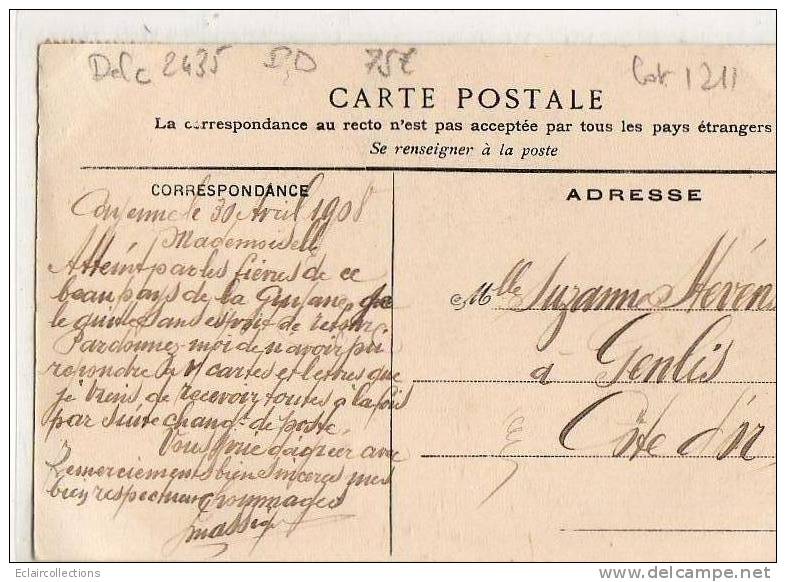 Delc 2435 75€ Cot 1211
CARTE POSTALE
La correspondance au recto n'est pas acceptée par tous les pays étrangers
Se renseigner à la poste
CORRESPONDANCE
Cayenne le 30 Avril 1908
Mademoiselle
Atteint par les fièvres de ce
beau pays de la Guyane, que
je quitte sans espoir de retour,
Pardonnez-moi de n'avoir pu
repondre à vos cartes et lettres que
je viens de recevoir toutes à la fois
par suite chang.t de poste.
Vous prie d'agréer avec
Remerciements bien sincères mes
bien respectueux hommages
ADRESSE
Mlle Suzanne Stéven
à Genlis
Côte d'or
Eclaircollections
delcampe.net